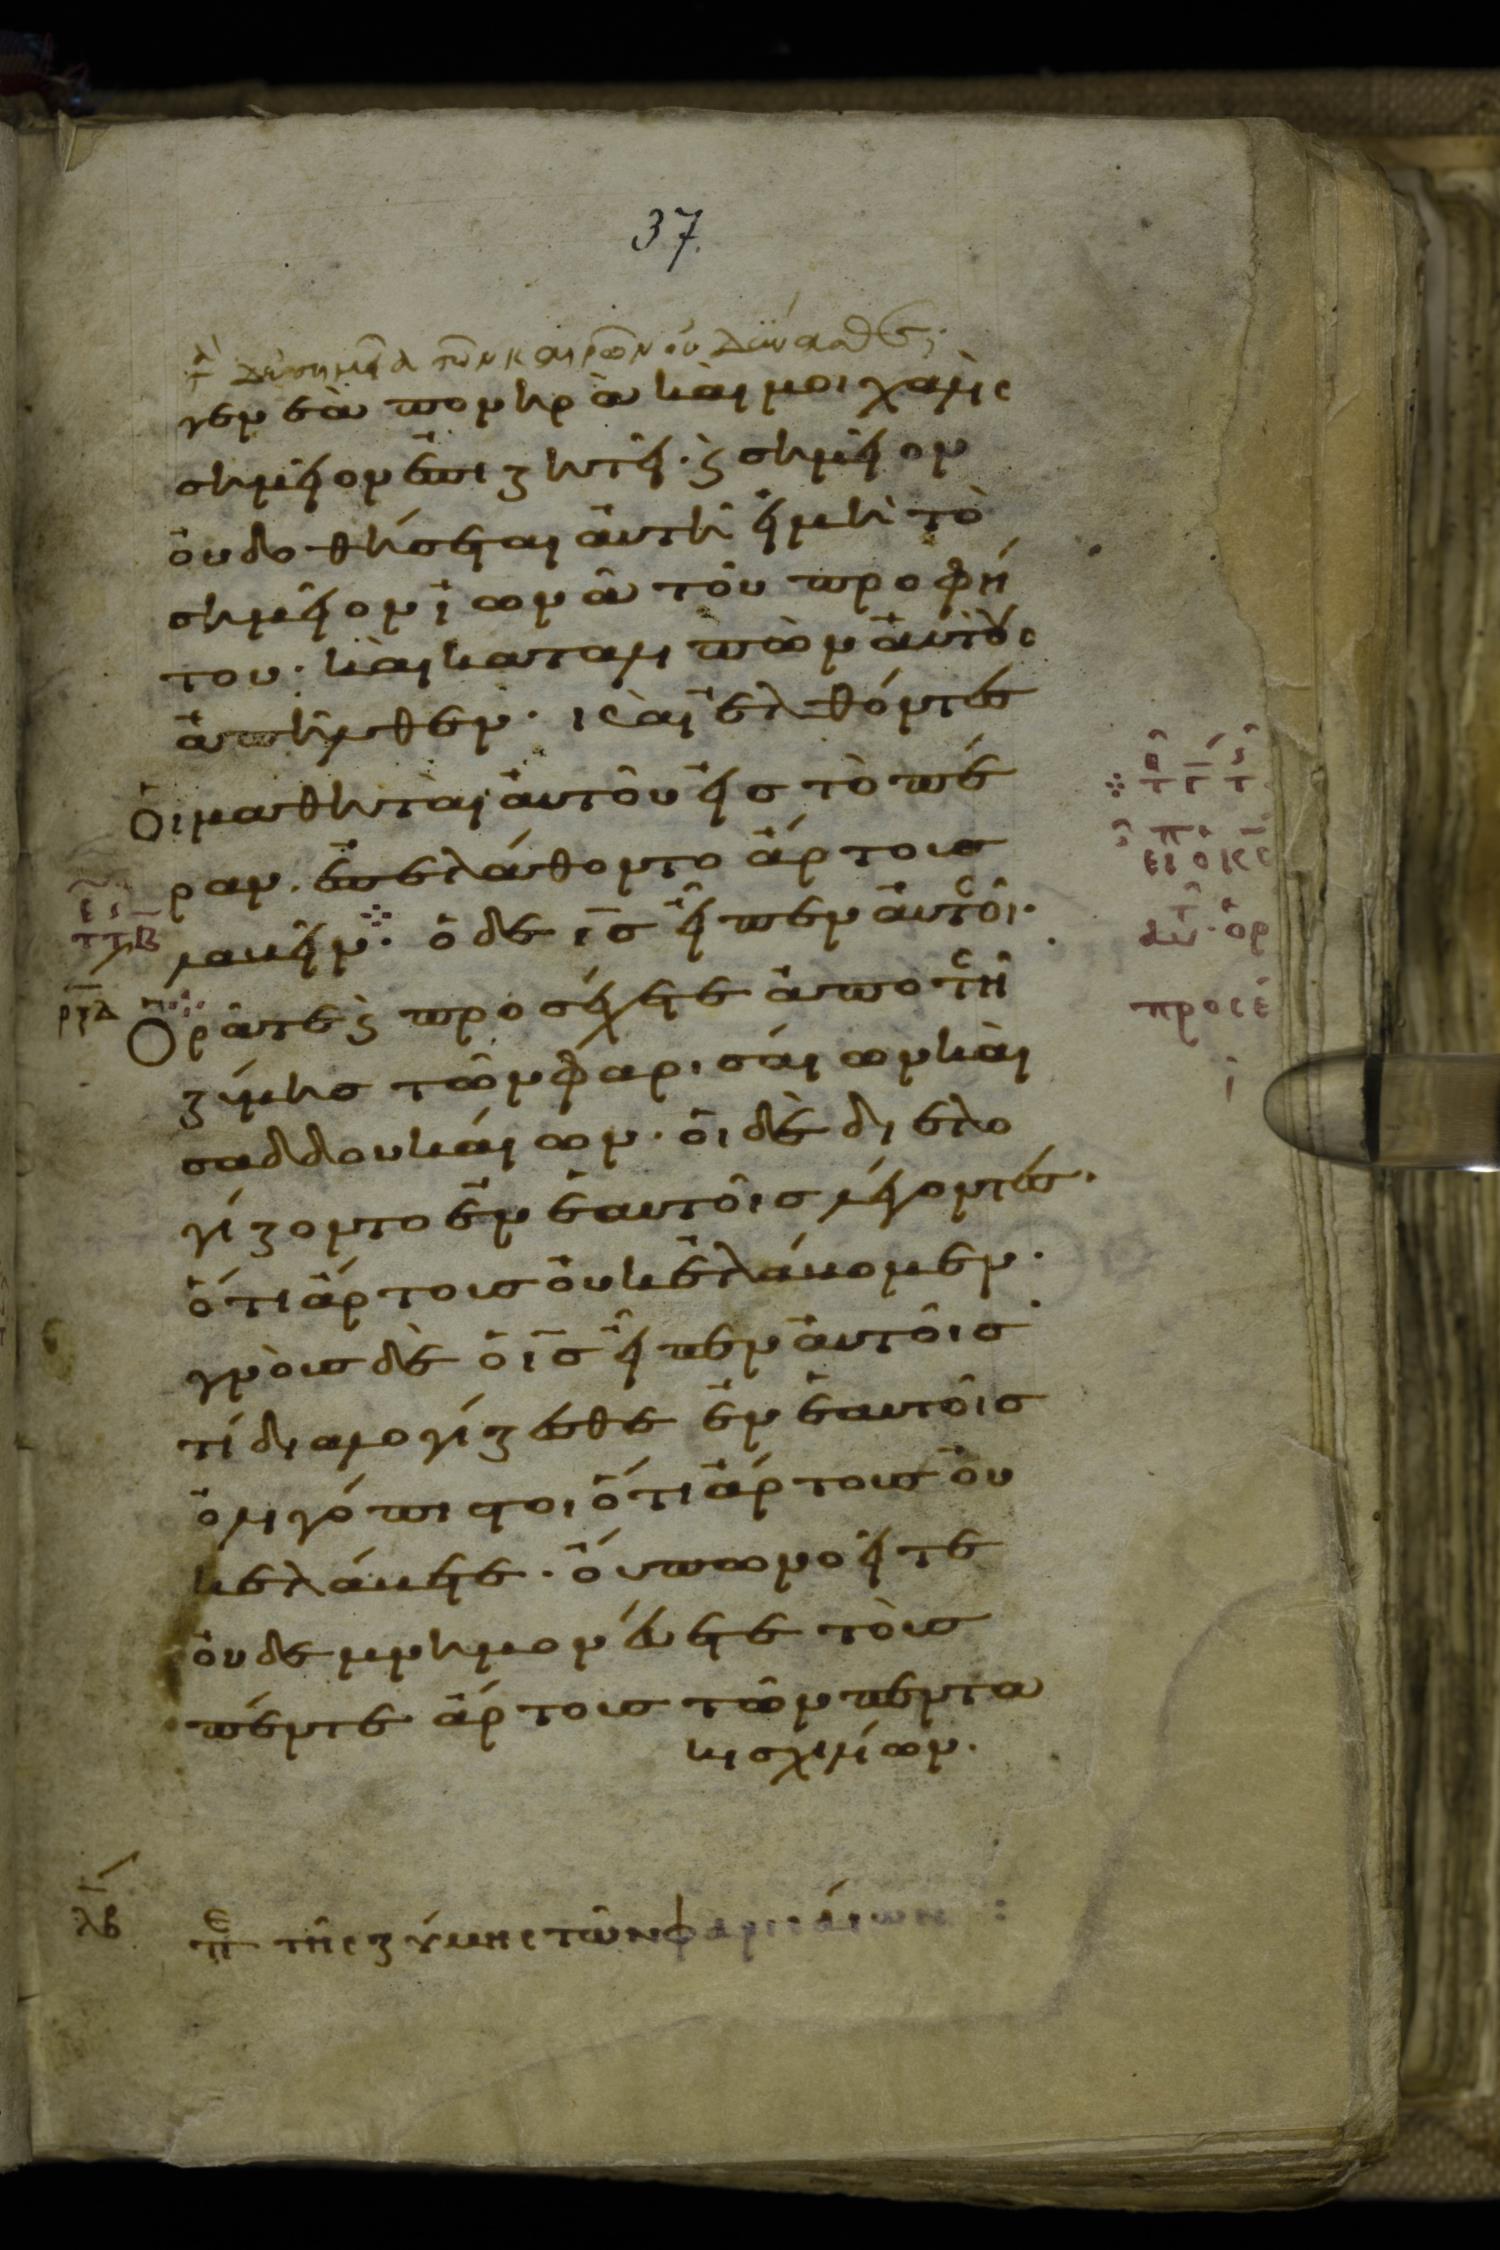 37
τὰ δὲ σημεῖα τῶν καιρῶν οὐ δύνασθε;
γενεὰ πονηρὰ καὶ μοιχαλὶς
σημεῖον ἐπιζητεῖ· ϗ σημεῖον
ὀυ δοθήσεται ἀυτῆ εἰ μὴ τὸ
σημεῖον ἰωνᾶ τοῦ προφή
του· καὶ καταλιπὼν ἀυτοὺς
ἀπῆλθεν· καὶ ἐλθόντες
Ὁι μαθηταὶ ἀυτοῦ εἰς τὸ πέ
ραν. ἐπελάθοντο ἄρτους
λαβεῖν· ὁ δὲ ις εἶπεν ἀυτοῖς·
Ὁρᾶτε ϗ προσέχετε ἀπο τῆς
ζύμης τῶν φαρισάιων καὶ
σαδδουκάιων· ὁι δὲ διελο
γίζοντο ἐν ἑαυτοῖς λέγοντες·
ὅτι ἄρτους ὀυκ ἐλάβομεν·
γνοὺς δὲ ὁ ις εἶπεν ἀυτοῖς·
τί διαλογίζεσθε ἐν ἑαυτοῖς
ὀλιγόπιστοι ὅτι ἄρτους ὀυ
κ ἐλάβετε· ὄυπω νοεῖτε
ὀυδε μνημονέυετε τοὺς
πέντε ἄρτους τῶν πεντα
κισχιλίων·
λβ πε τῆς ζύμης τῶν φαρισάιων :